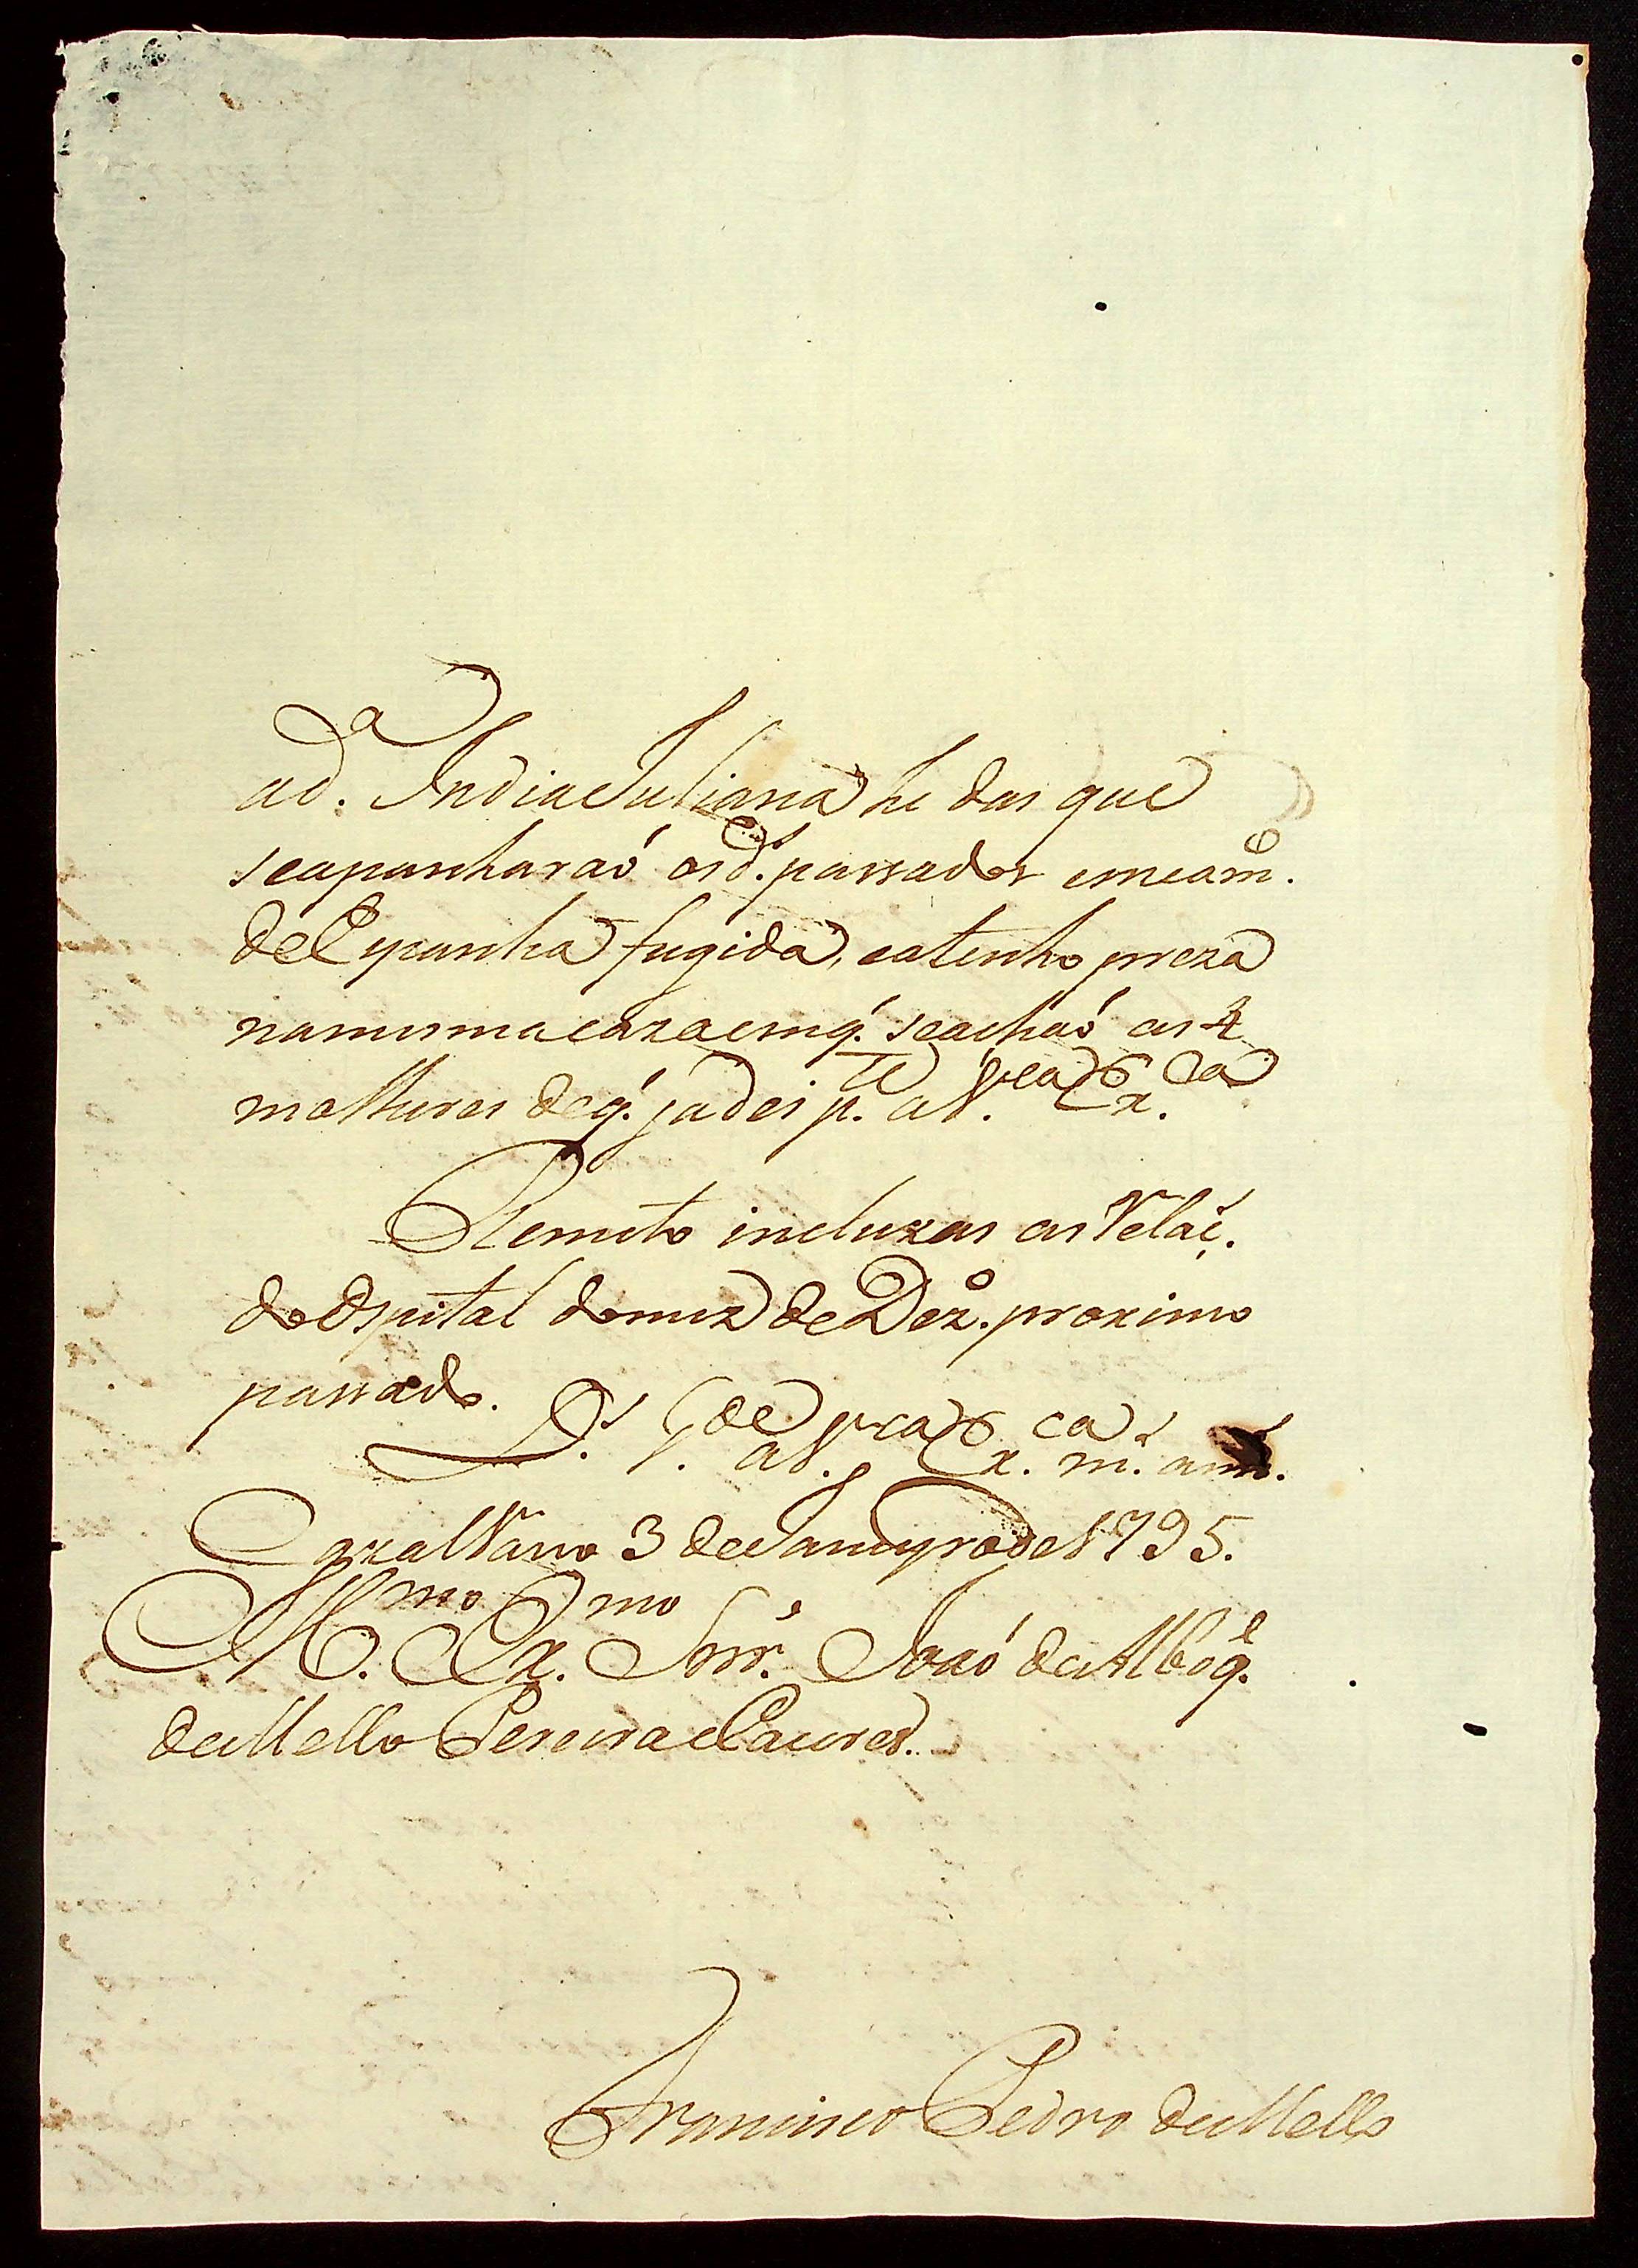 ad.ª India Juliana he das que
seapanharaó osd.ˢ passados emcam.º
de Espanha fugida, eatenho preza
namesma caza emq̃ seachaó as 4
molheres deq̃ jadei p.te aV. Ex.ca
Remeto incluzas as Relaç.s
do Ospital domez de Dez.º proximo
passado.
D.s G.de aV. Ex.ca m.s ann.s
3 de Janeyro de 1795.
Ill.mo Ex.mo Snr.ᵉ Joaó de Alboq.ᵉ
de Mello Pereira e Caceres.
Francisco Pedro de Mello